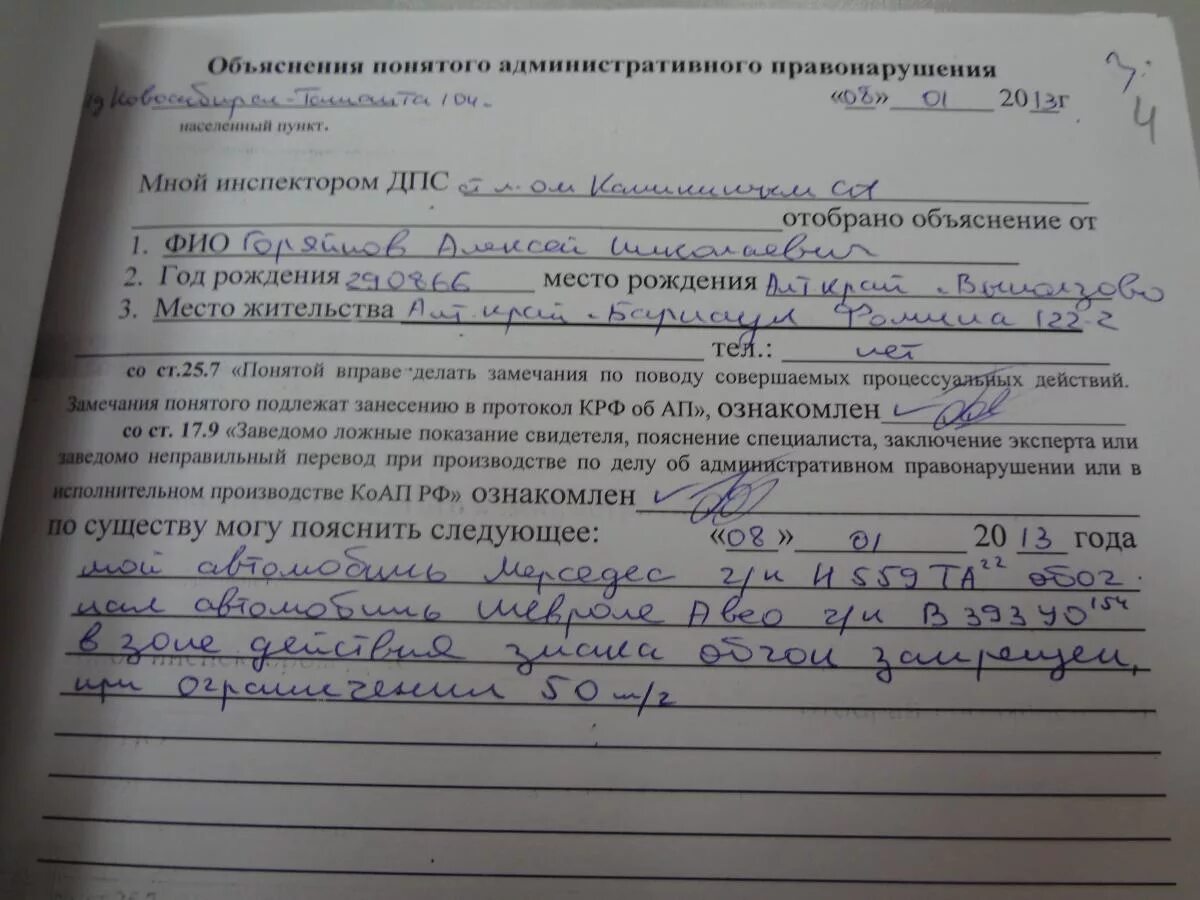 Объяснения понятого административного правонарушения
Новосибирск-Ташанта 104.
«08» 01 2013г
населенный пункт.
4
Мной инспектором ДПС
отобрано объяснение от
1. ФИО Горяйнов Алексей Николаевич
2. Год рождения 290866 место рождения Алт край
3. Место жительства Алт. край г. Барнаул Фомина 122-2
тел.: нет
со ст.25.7 «Понятой вправе делать замечания по поводу совершаемых процессуальных действий.
Замечания понятого подлежат занесению в протокол КРФ об АП», ознакомлен
со ст. 17.9 «Заведомо ложные показание свидетеля, пояснение специалиста, заключение эксперта или
заведомо неправильный перевод при производстве по делу об административном правонарушении или в
исполнительном производстве КоАП РФ» ознакомлен
по существу могу пояснить следующее: «08» 01 2013 года
мой автомобиль Мерседес г/н Н 559 ТА 22 обог
нал автомобиль Шевроле Авео г/н
в зоне действия знака обгон запрещен,
при ограничении 50